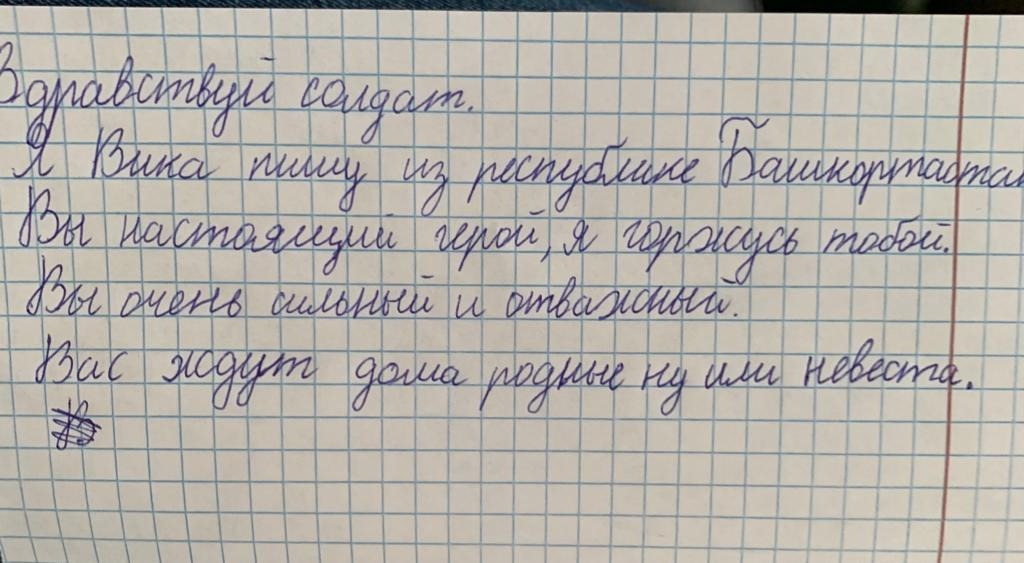 Здравствуй солдат.
Я Вика пишу из республике Башкортастан
Вы настоящий герой, я горжусь тобой.
Вы очень сильный и отважный.
Вас ждут дома родные ну или невеста.